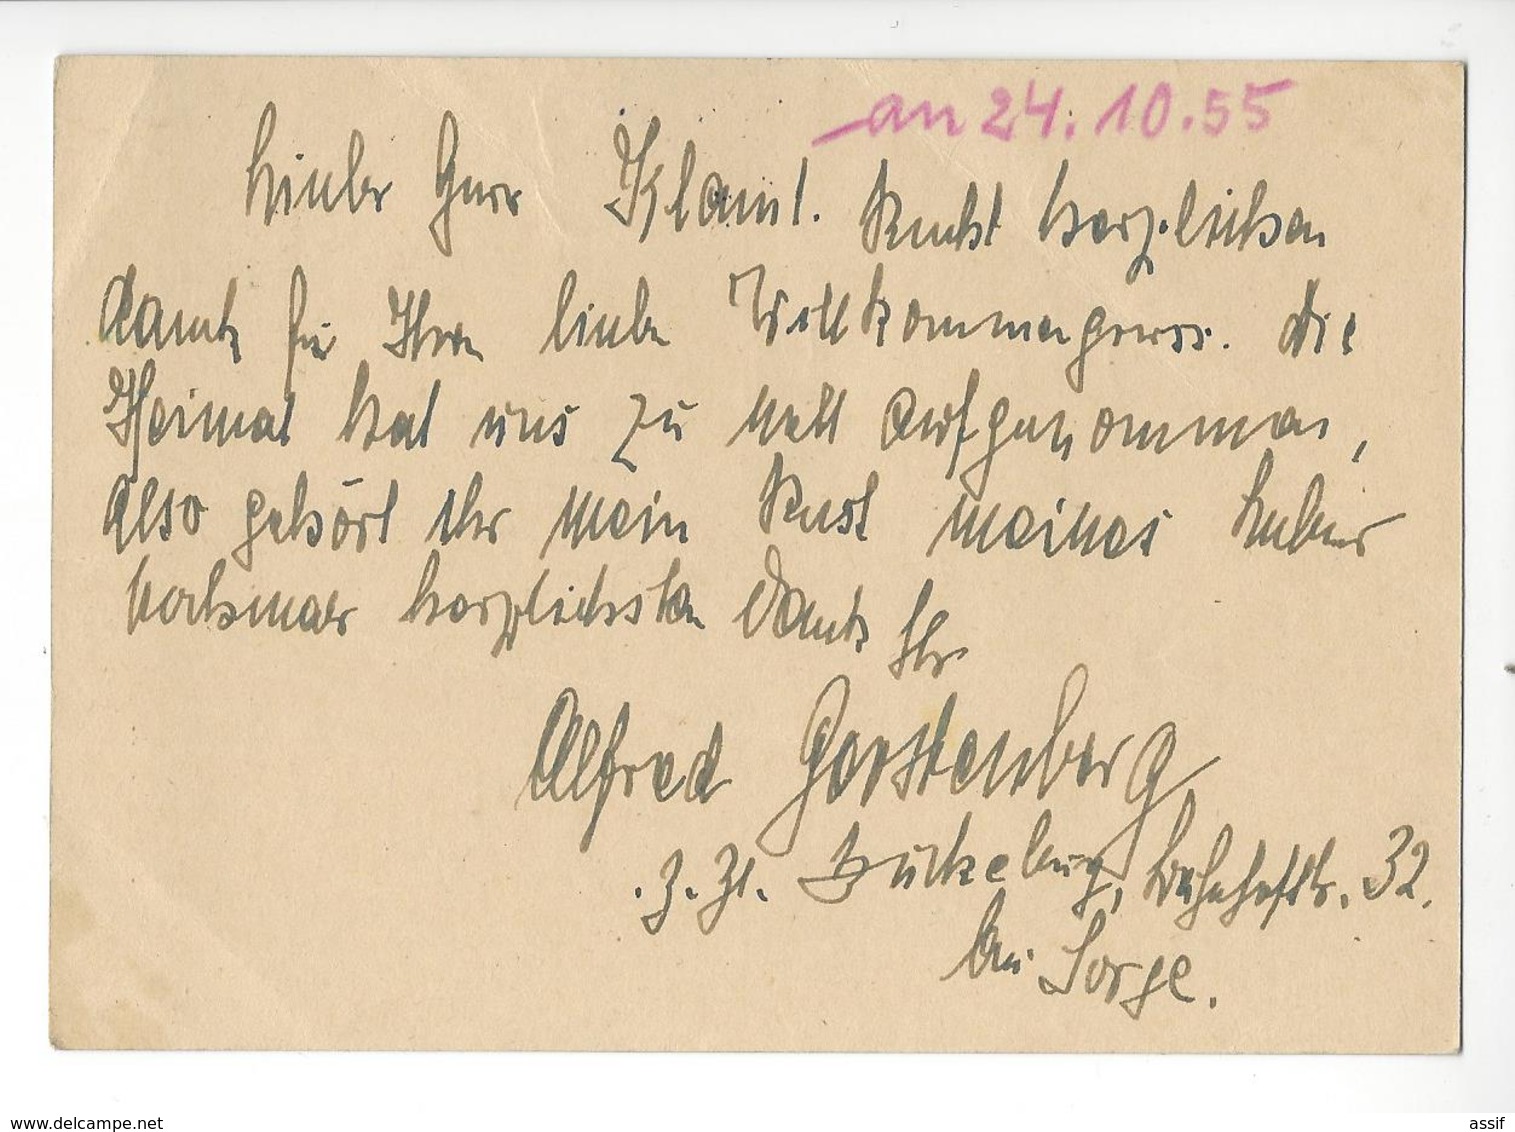 an 24.10.55
Lieber Herr Klaunt. Recht herzlichen
Dank für Ihren lieben Willkommengruss. Die
Heimat hat uns zu nett aufgenommen,
also gehört ihr mein Rest meines Lebens
Nochmals herzlichsten Dank Ihr
Alfred Gerstenberg
z. Zt. Bückeburg, Bahnhofstr. 32.
bei Sorge.
www.delcampe.net
assif